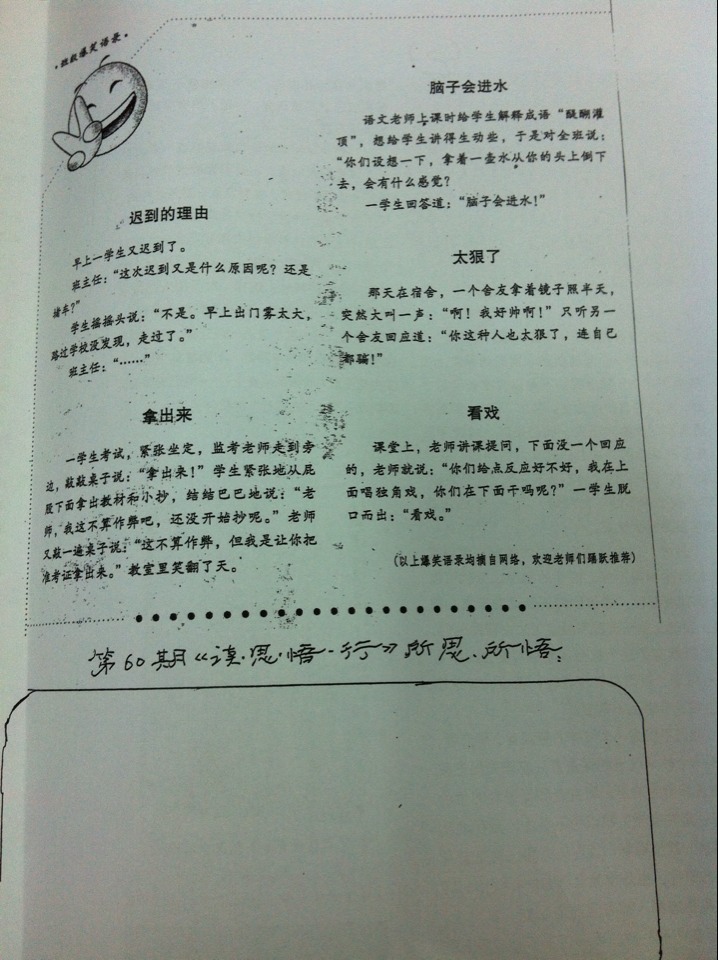 ·校数爆笑语录·
迟到的理由
早上一学生又迟到了。
班主任：“这次迟到又是什么原因呢？还是
堵车？”
学生摇摇头说：“不是。早上出门雾太大，
路过学校没发现，走过了。”
班主任：“……”
拿出来
一学生考试，紧张坐定，监考老师走到旁
边，敲敲桌子说：“拿出来！”学生紧张地从屁
股下面拿出教材和小抄，结结巴巴地说：“老
师，我这不算作弊吧，还没开始抄呢。”老师
又敲一遍桌子说：“这不算作弊，但我是让你把
准考证拿出来。”教室里笑翻了天。
脑子会进水
语文老师上课时给学生解释成语“醍醐灌
顶”，想给学生讲得生动些，于是对全班说：
“你们设想一下，拿着一壶水从你的头上倒下
去，会有什么感觉？
一学生回答道：“脑子会进水！”
太狠了
那天在宿舍，一个舍友拿着镜子照半天，
突然大叫一声：“啊！我好帅啊！”只听另一
个舍友回应道：“你这种人也太狠了，连自己
都骗！”
看戏
课堂上，老师讲课提问，下面没一个回应
的，老师就说：“你们给点反应好不好，我在上
面唱独角戏，你们在下面干吗呢？”一学生脱
口而出：“看戏。”
（以上爆笑语录均摘自网络，欢迎老师们踊跃推荐）
第60期《读·思·悟·行》所思、所悟：